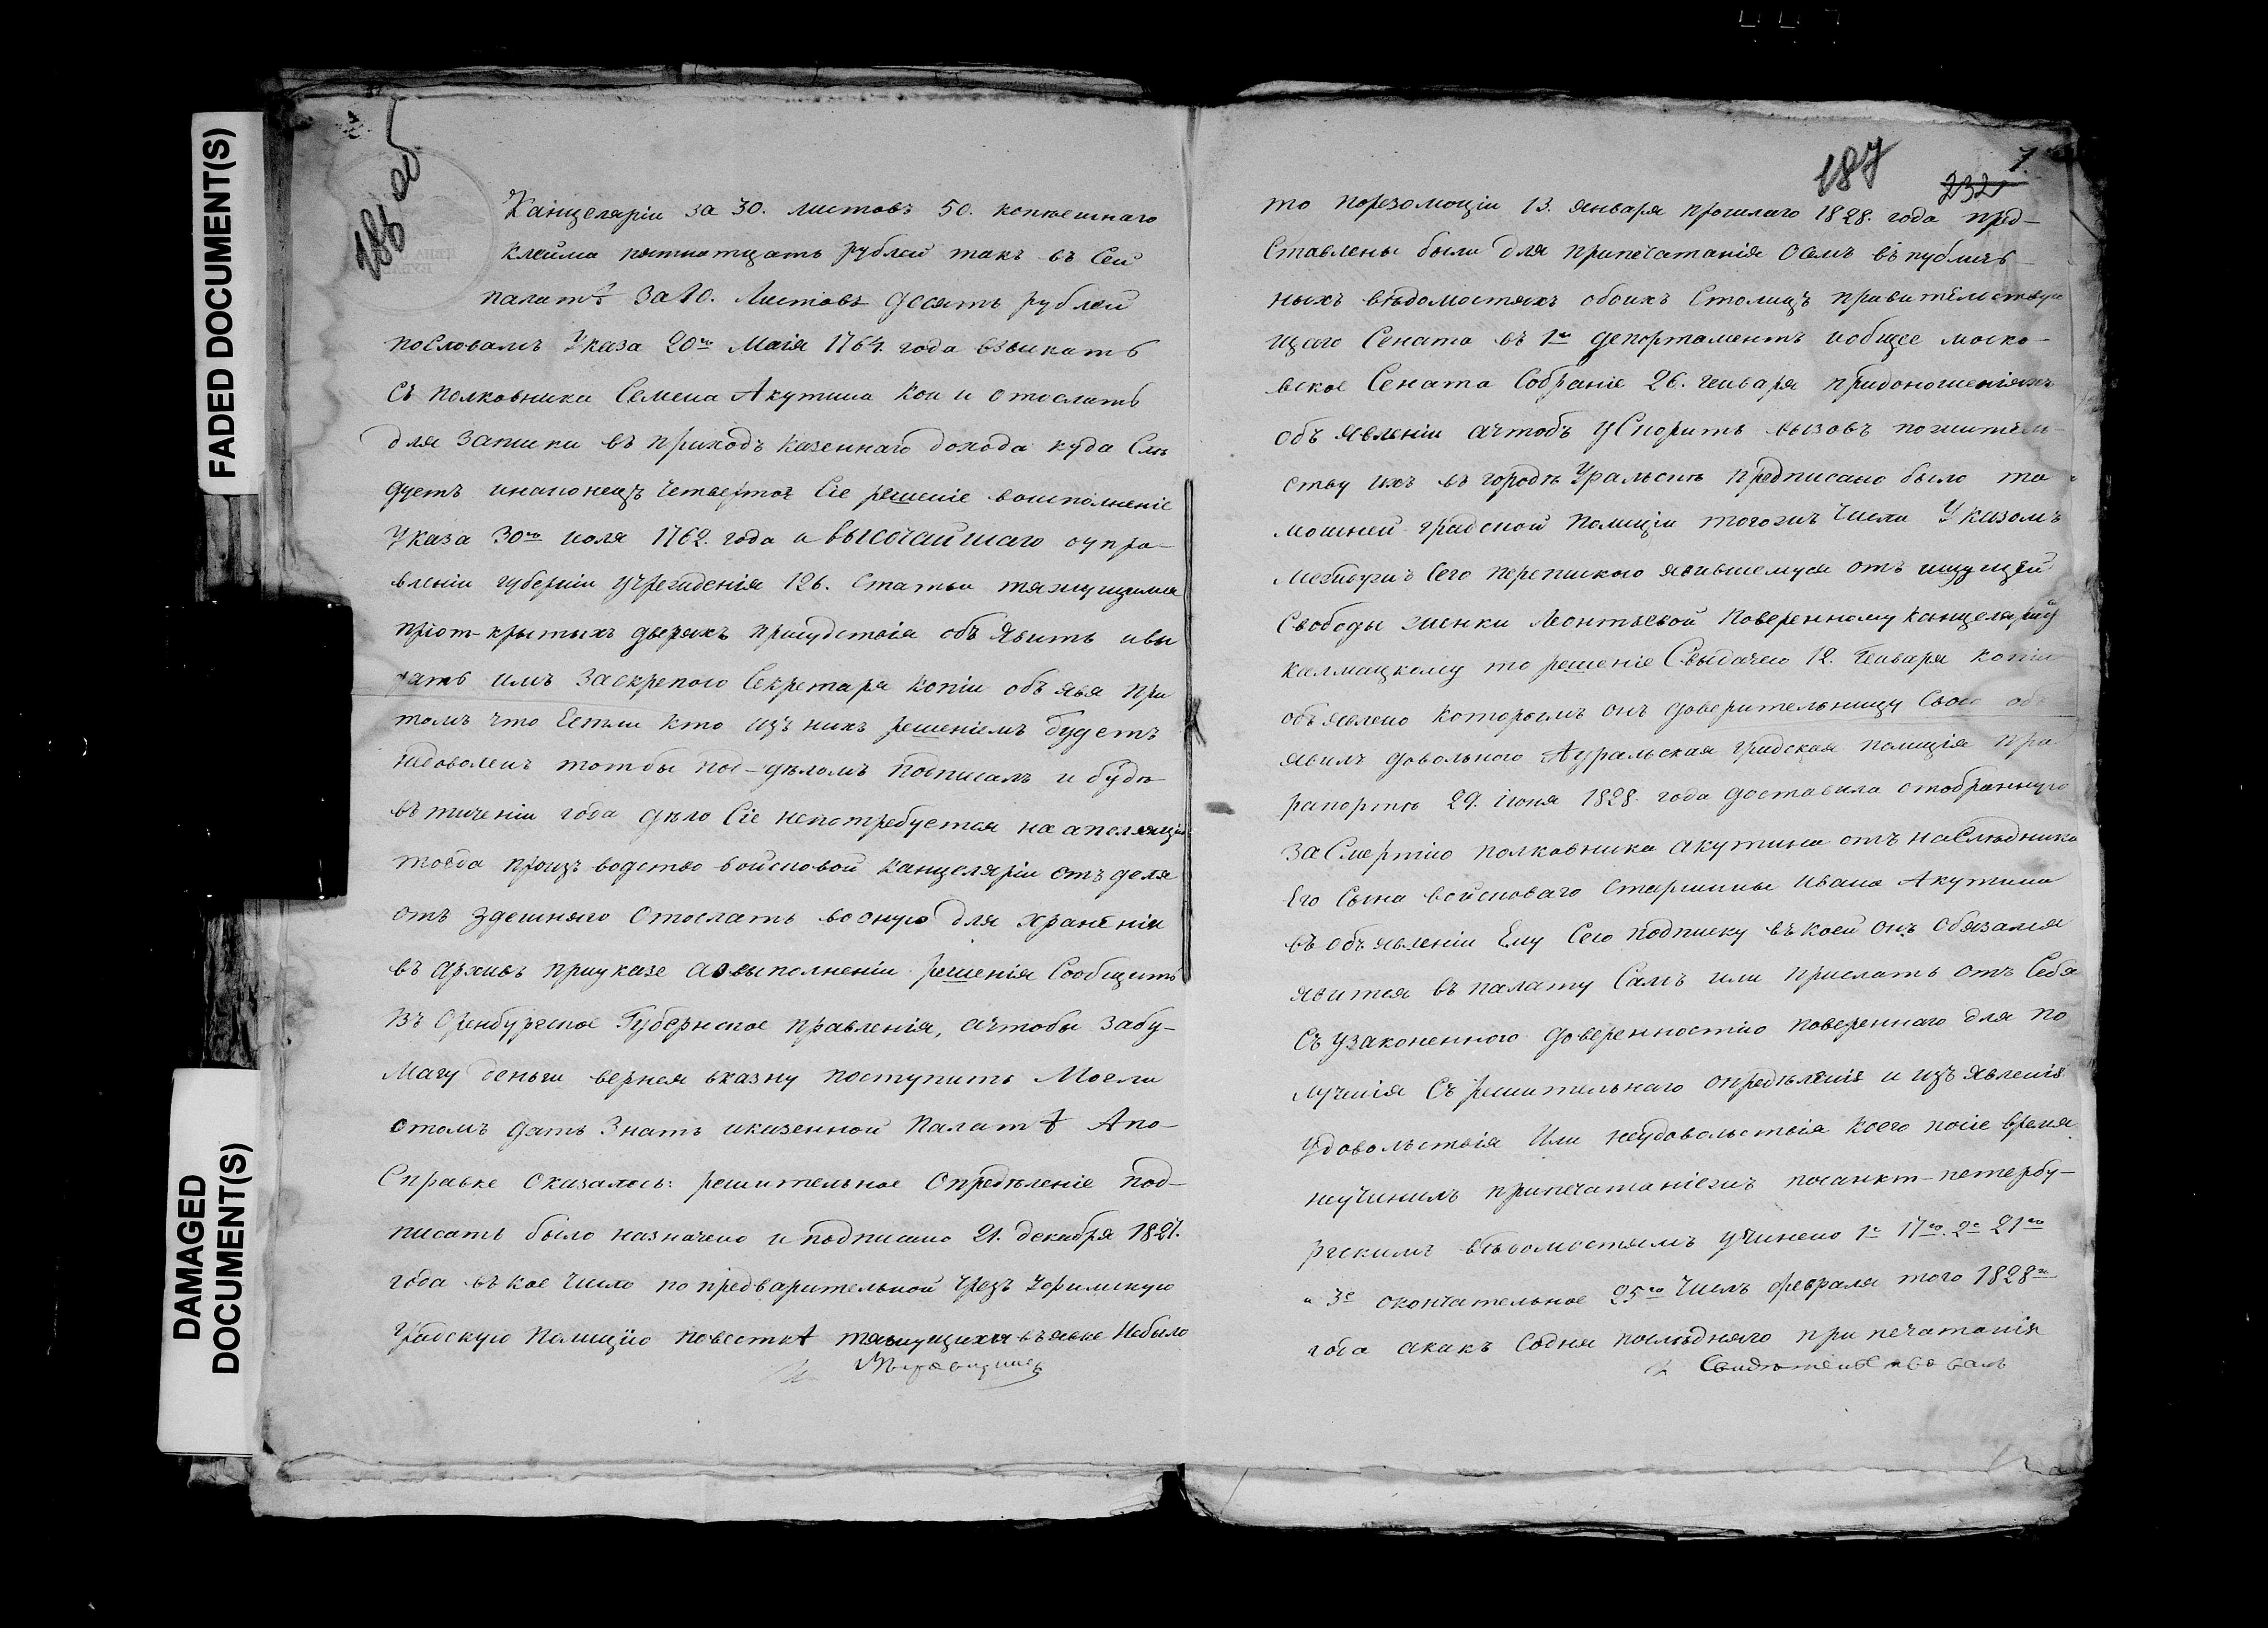 FADED DOCUMENT(S)
DAMAGED
DOCUMENT(S)
186 об
Канцеляріи за 30. листовъ 50. копѣешнаго
клейма пятнатцать рублей такъ въ сей
палатѣ за 10. Листовъ десять рублей
пословамъ Указа 20го Маія 1764. года взыскать
съ полковника Семена Акутина кои и отослать
для записки въ приходъ казеннаго дохода куда слѣ
дуетъ инаконецъ четвертое Сіе решеніе воисполненіе
Указа 30го июля 1762. года и Высочайшаго оупра-
вленіи губерніи учрежденія 126. статьи тяжущимся
приот-крытыхъ дверяхъ присудствія объявить ивы
дать имъ заскрепою Секретаря копіи объявя при
томъ что Естьли кто изъ нихъ решеніемъ будетъ
недоволенъ тотбы под-дѣломъ подписалъ и будѣ
въ теченіи года дѣло Сіе непотребуется на апелляцію
тогда произъводство войсковой канцеляріи отъделя
отъ здешняго отослать во оную для храненія
въ архивъ приуказе а о выполненіи решенія Сообщить
въ Оренбургское Губернское правленія, ачтобы забу-
магу деньги вернея вказну поступить Могли
отомъ дать знать иказенной Палатѣ Апо-
Справке оказалось: решительное опредѣленіе под-
писать было назначено и подписано 21. декабря 1827.
года въ кое число по предварительной чрезъ Уфимскую
Градскую полицію повесткѣ тяжущихся въявке небыло
187
232
7.
то порезолюціи 13. января прошлаго 1828. года пред-
ставлены были для припечатанія осемъ въ публич-
ныхъ вѣдомостяхъ обоихъ Столицъ правительствую
щаго Сената въ 1й депортаментъ иобщее моско-
вское Сената Собраніе 26. генваря придоношеніяхъ
объявленіи ачтобъ ускорить вызовъ пожитель-
ству ихъ въ городѣ Уральскѣ предписано было та
мошней градской полиціи тогожъ числа Указомъ
Междужъ сего перепискою явившемуся отъ ищущей
Свободы женки Леонтьевой Поверенному канцеляристу
калмацкому то решеніе Свыдачею 12. Генваря копіи
объявлено которымъ онъ доверительницу Свою объ
явилъ довольною Ауральская градская полиція при
рапортѣ 29. іюня 1828. года доставила отобранную
засмертію полковника акутина отъ наслѣдника
Его сына войсковаго старшины ивана Акутина
въ объявленіи Ему Сего подписку въ коей онъ обязался
явится въ палату Самъ или прислать отъ Себя
Съ узаконенною доверенностію повереннаго для по
лученія Съ решительнаго опредѣленія и изъявленія
удовольствія Или неудовольствія коего посіе время
неучинилъ припечатаніежъ посанкт-петербу-
ргскимъ вѣдомостямъ учинено 1е 17го. 2е 21го
и 3е окончательное 25го числъ февраля того 1828го
года акакъ Содня послѣдняго припечатанія
Свидѣтельствовалъ